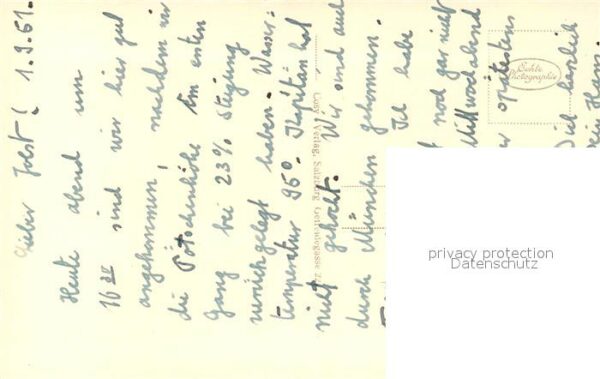 Lieber Jost! 1.9.61.
Heute abend um
16 30 sind wir hier gut
angekommen, nachdem wir
die Pötschenhöhe im ersten
Gang bei 23% Steigung
zurückgelegt haben. Wasser-
temperatur 95° Kapitän hat
nicht gekocht. Wir sind auch
durch München gekommen.
Ich habe
noch gar nicht
Mittwoch abend
spätestens
herzlich
Hans.
Cosy Verlag, Salzburg
Echte
Photographie
privacy protection
Datenschutz